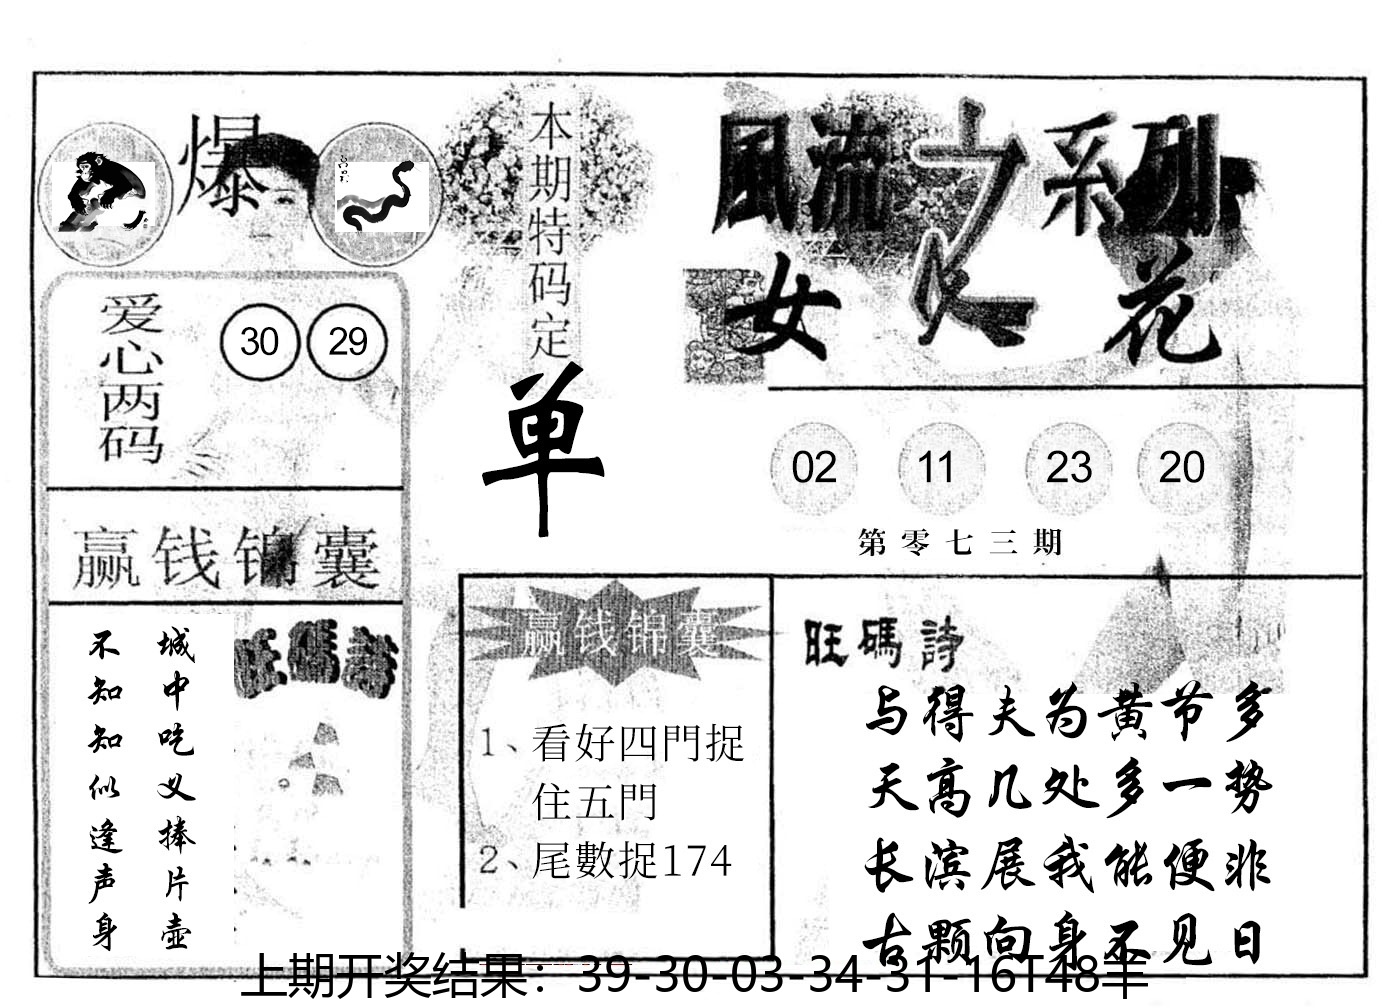 爆
本期特码定
单
風流之系列
女人花
爱心两码
30 29
02 11 23 20
第零七三期
赢钱锦囊
城中吃义捧片壶
不知知似逢声身
旺碼詩
赢钱锦囊
1、看好四門捉
住五門
2、尾數捉174
旺碼詩
与得夫为黄节多
天高几处多一势
长滨展我能便非
古颗向身不见日
上期开奖结果：39-30-03-34-31-16T48羊